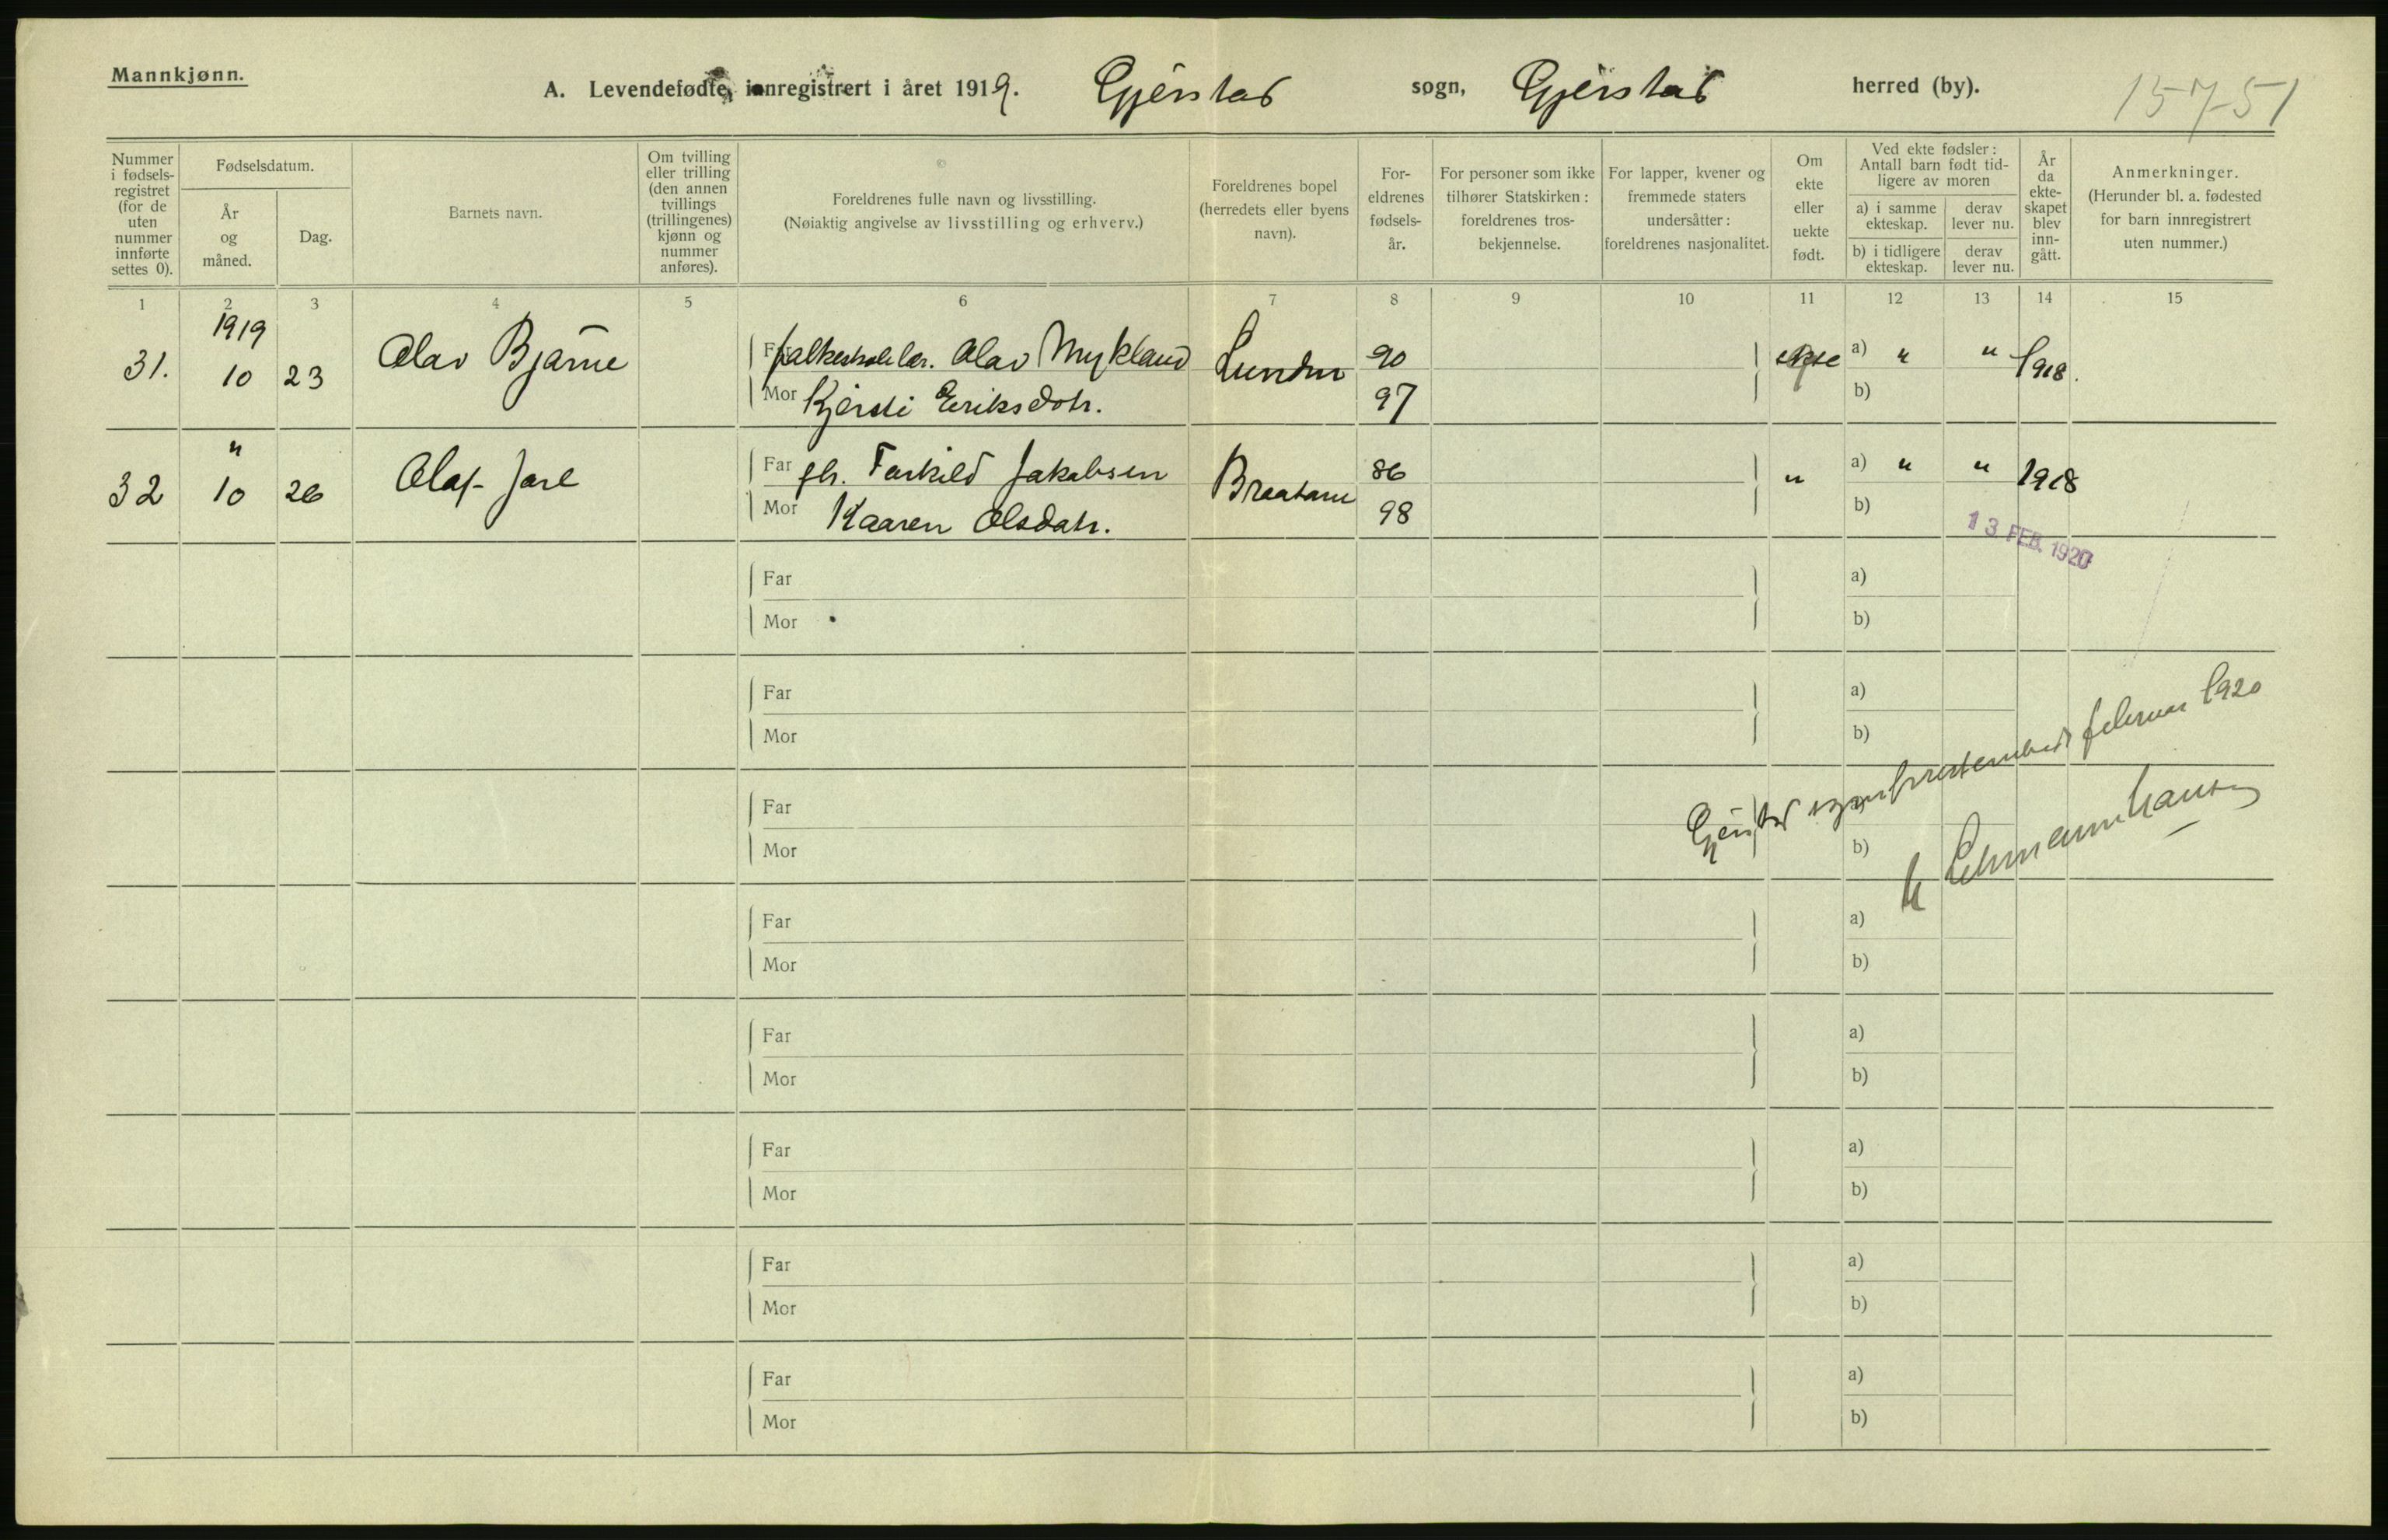 Mannkjønn.
A. Levendefødte, innregistrert i året 1919. Gjerstad sogn, Gjerstad herred (by). 15751
Nummer i fødsels-registret (for de uten nummer innførte settes 0).
Fødselsdatum.
År og måned.
Dag.
Barnets navn.
Om tvilling eller trilling (den annen tvillings (trillingenes) kjønn og nummer anføres).
Foreldrenes fulle navn og livsstilling.
(Nøiaktig angivelse av livsstilling og erhverv.)
Foreldrenes bopel (herredets eller byens navn).
For-eldrenes fødsels-år.
For personer som ikke tilhører Statskirken: foreldrenes tros-bekjennelse.
For lapper, kvener og fremmede staters undersåtter: foreldrenes nasjonalitet.
Om ekte eller uekte født.
Ved ekte fødsler: Antall barn født tid-ligere av moren
a) i samme ekteskap.
derav lever nu.
b) i tidligere ekteskap.
derav lever nu.
År da ekte-skapet blev inn-gått.
Anmerkninger.
(Herunder bl. a. fødested for barn innregistrert uten nummer.)
1 2 3 4 5 6 7 8 9 10 11 12 13 14 15
1919
31. 10 23 Olav Bjarne Far folkeskolelær. Olav Mykland Lunden 90 ekte a) " " 1918.
Mor Kjersti Eriksdotr. 97 b)
"
32 10 26 Olaf Jarl Far gbr. Torkild Jakobsen Braatane 86 " a) " " 1918
Mor Kaaren Olsdatr. 98 b)
13 FEB. 1920
Far a)
Mor b)
Far a)
Mor b)
Gjerstad sogneprestembede februar 1920
Far a)
Mor b)
Lehmann Hansen
Far a)
Mor b)
Far a)
Mor b)
Far a)
Mor b)
Far a)
Mor b)
Far a)
Mor b)